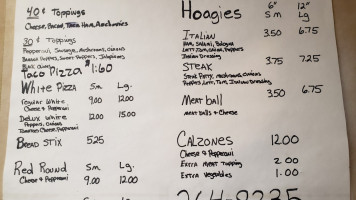 40¢ Toppings
Cheese, Bacon, Tuna Ham, Anchovies
30¢ Toppings
Pepperoni, Sausage, Mushrooms, Onions
Banana Peppers, Sweet Peppers, Jalapenos
Black Olives
Taco Pizza 1.60
White Pizza Sm. Lg.
Regular White 9.00 12.00
Cheese & Pepperoni
Delux White 12.00 15.00
Peppers, Onions
Tomatoes Cheese, Pepperoni
Bread Stix 5.25
Red Round Sm. Lg.
Cheese & Pepperoni 9.00 12.00
Hoagies 6" 12"
Sm Lg
Italian 3.50 6.75
Ham, Salami, Bologna
Lett, Tom, Onion, Peppers
Italian Dressing
Steak 3.75 7.25
Steak Patty, Mushrooms, Onions
Peppers, Lett, Tom, Italian Dressing
Meat ball 3.50 6.75
Meat balls & Cheese
Calzones 12.00
Cheese & Pepperoni
Extra Meat Topping 2.00
Extra Vegetables 1.00